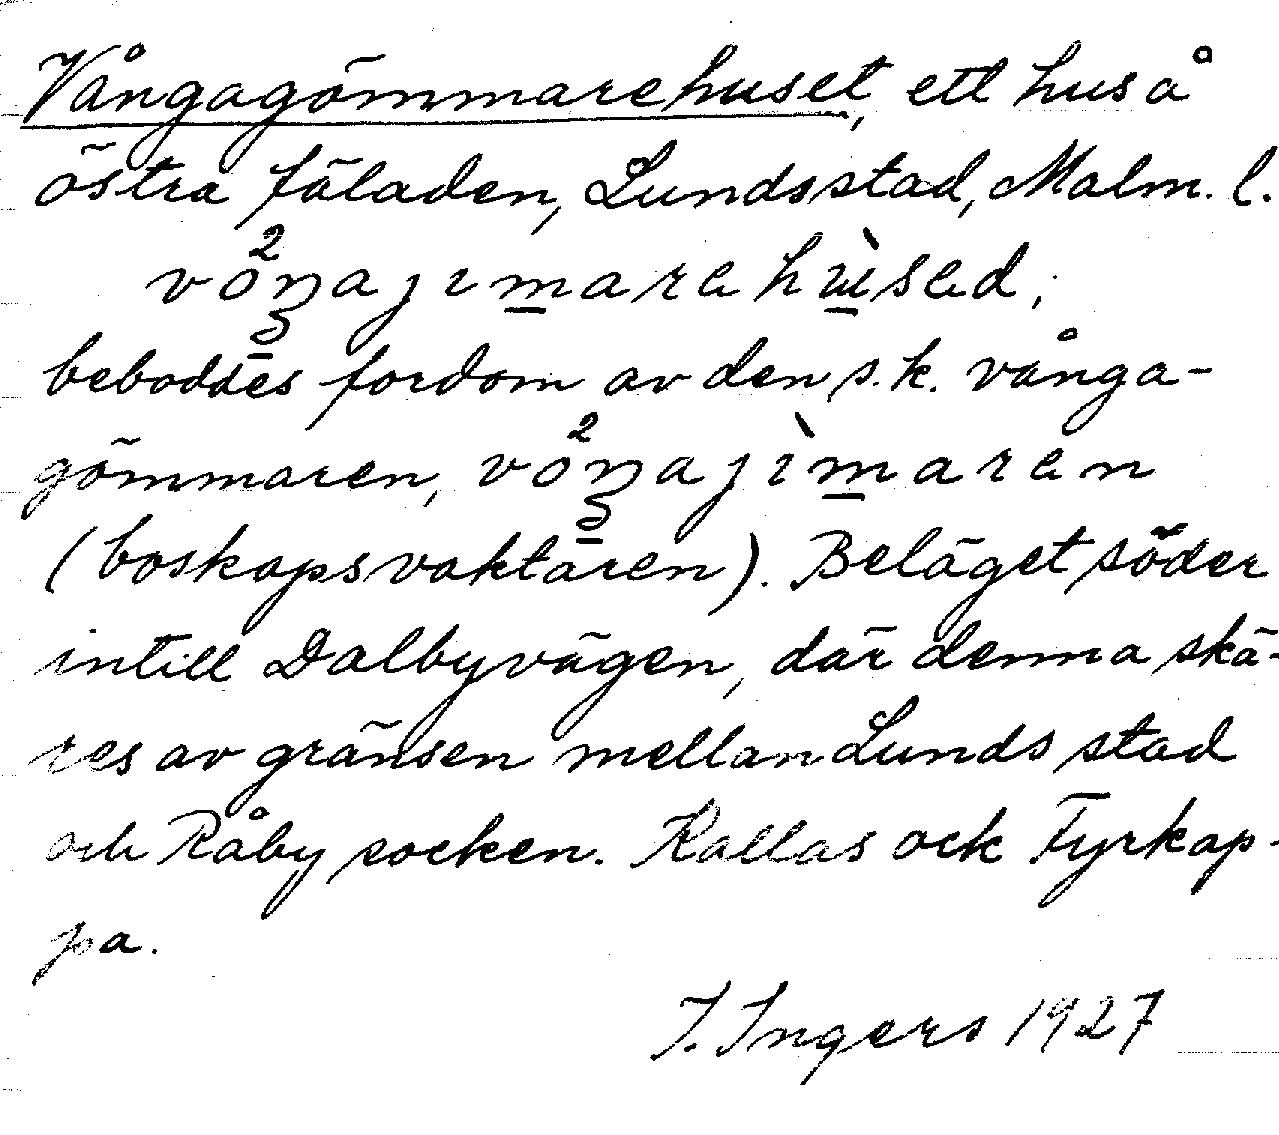 Vångagömmarehuset, ett hus å
östra fäladen, Lunds stad, Malm. l.
våŋajımarehùsed;
beboddes fordom av den s.k. vånga-
gömmaren, våŋajìmaren
(boskapsvaktaren). Beläget söder
intill Dalbyvägen, där denna skä-
res av gränsen mellan Lunds stad
och Råby socken. Kallas ock Fyrkap-
pa.
I. Ingers 1927